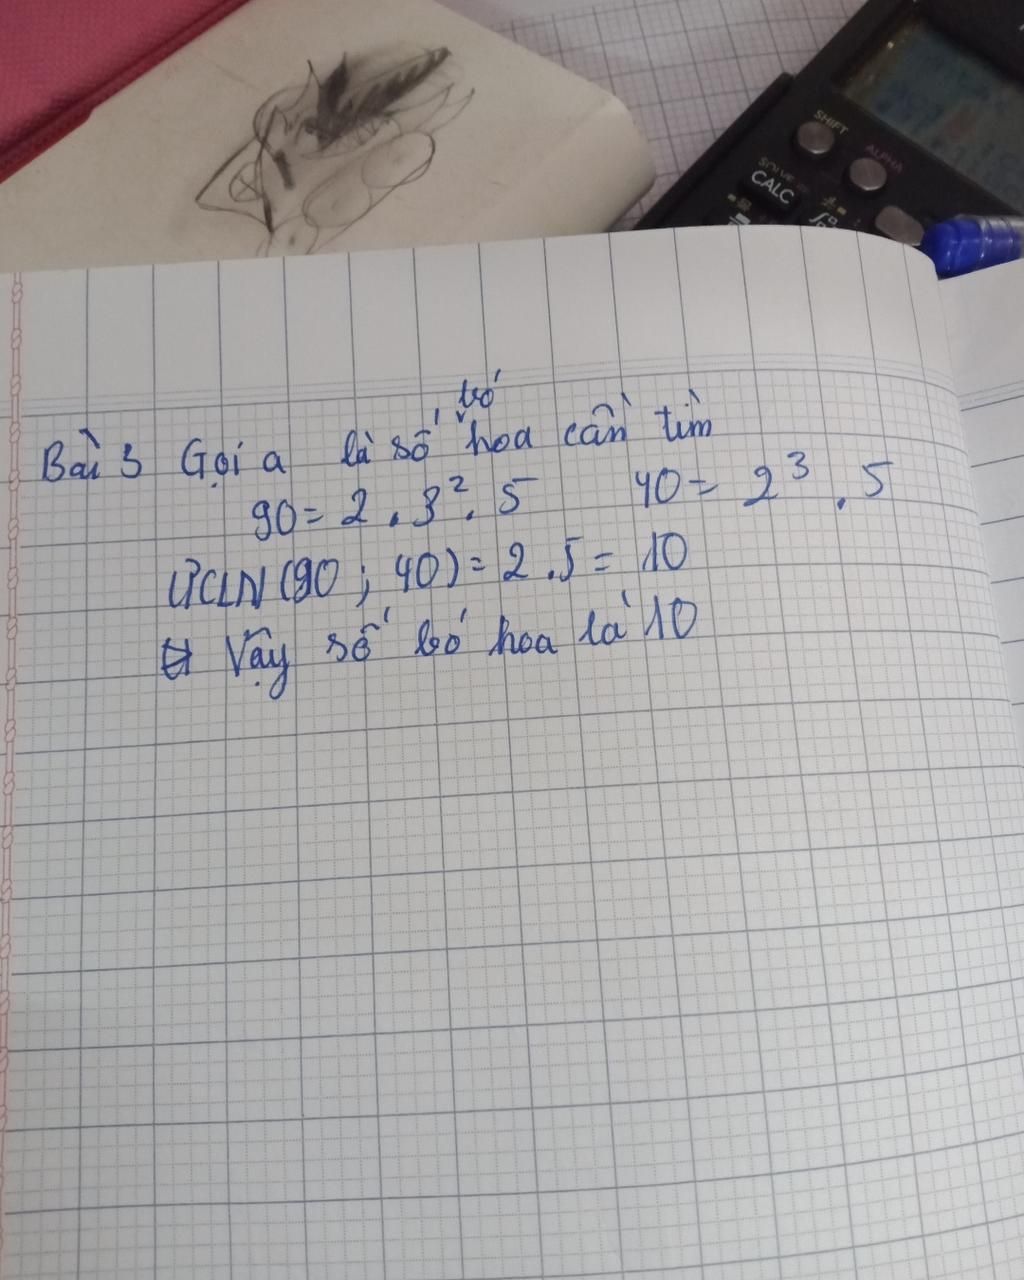 SHIFT
ALPHA
SOLVE =
CALC
bó
Bài 3 Gọi a là số hoa cần tìm
90 = 2 . 3². 5 40 = 2³ . 5
ƯCLN (90 ; 40) = 2 . 5 = 10
Vậy số bó hoa là 10